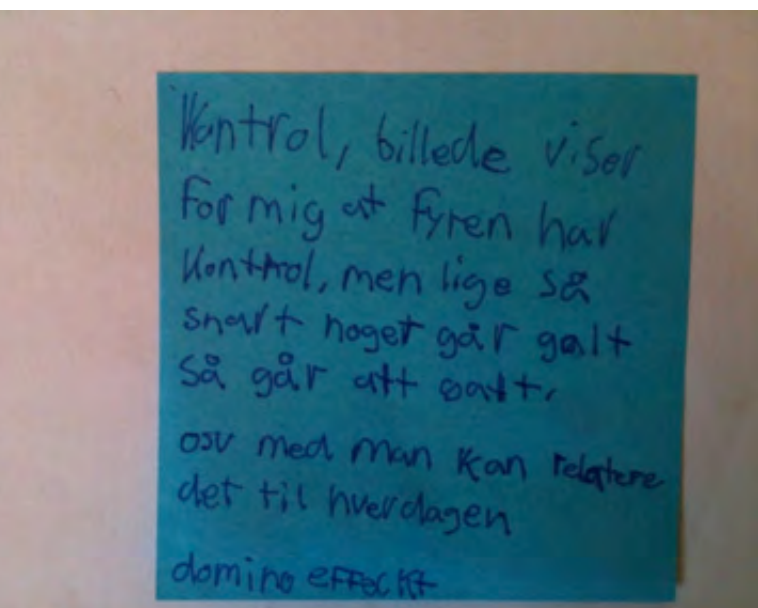 Kontrol, billede viser
for mig at fyren har
kontrol, men lige så
snart noget går galt
så går alt galt.
osv med man kan relatere
det til hverdagen
domino effeckt